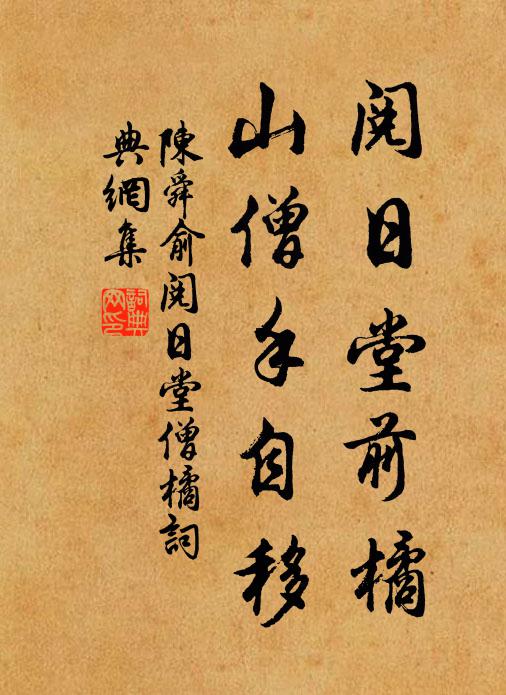 閱日堂前橘
山僧手自移
陳舜俞閱日堂僧橘詞
典網集
詞典
网印